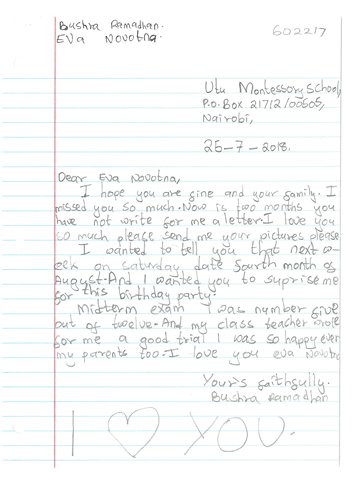 Bushra Ramadhan.
EVa Novotna.
602217
Utu Montessory School,
P.O. Box 21712/00505,
Nairobi,
25-7-2018.
Dear Eva Novotna,
I hope you are fine and your family. I
missed you so much. Now is two months you
have not write for me a letter. I love you
so much please send me your pictures please
I wanted to tell you that next we-
ek on saturday date fourth month of
August. And I wanted you to suprise me
for this birthday party.
Midterm exam I was number five
out of twelve. And my class teacher wrote
for me a good trial I was so happy even
my parents too. I love you eva Novotna
Yours faithfully.
Bushra Ramadhan
I ♡ YOU.